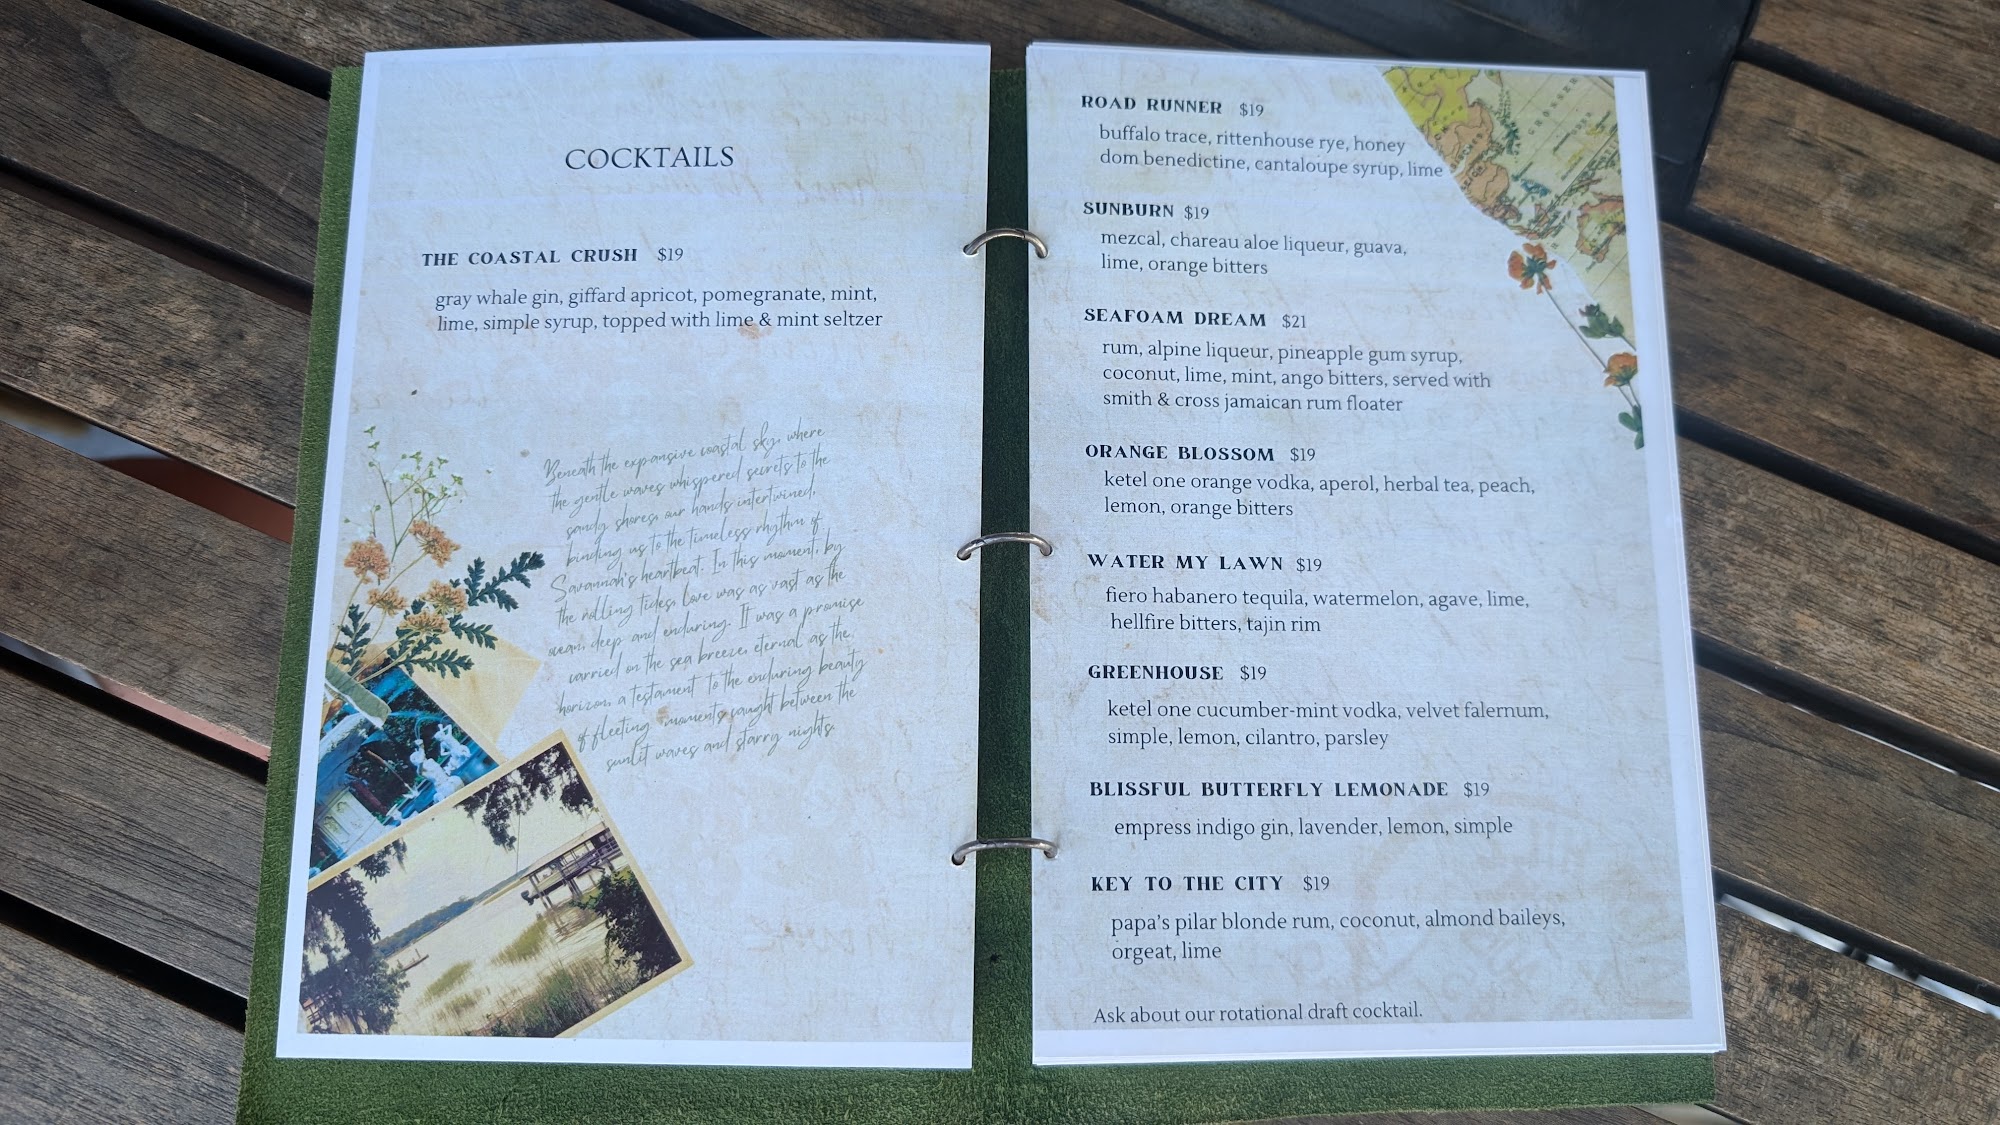 COCKTAILS
THE COASTAL CRUSH $19
gray whale gin, giffard apricot, pomegranate, mint,
lime, simple syrup, topped with lime & mint seltzer
Beneath the expansive coastal sky, where
the gentle waves whispered secrets to the
sandy shores, our hands intertwined,
binding us to the timeless rhythm of
Savannah's heartbeat. In this moment, by
the rolling tides, love was as vast as the
ocean, deep and enduring. It was a promise
carried on the sea breeze, eternal as the
horizon, a testament to the enduring beauty
of fleeting moments caught between the
sunlit waves and starry nights.
ROAD RUNNER $19
buffalo trace, rittenhouse rye, honey
dom benedictine, cantaloupe syrup, lime
SUNBURN $19
mezcal, chareau aloe liqueur, guava,
lime, orange bitters
SEAFOAM DREAM $21
rum, alpine liqueur, pineapple gum syrup,
coconut, lime, mint, ango bitters, served with
smith & cross jamaican rum floater
ORANGE BLOSSOM $19
ketel one orange vodka, aperol, herbal tea, peach,
lemon, orange bitters
WATER MY LAWN $19
fiero habanero tequila, watermelon, agave, lime,
hellfire bitters, tajin rim
GREENHOUSE $19
ketel one cucumber-mint vodka, velvet falernum,
simple, lemon, cilantro, parsley
BLISSFUL BUTTERFLY LEMONADE $19
empress indigo gin, lavender, lemon, simple
KEY TO THE CITY $19
papa's pilar blonde rum, coconut, almond baileys,
orgeat, lime
Ask about our rotational draft cocktail.